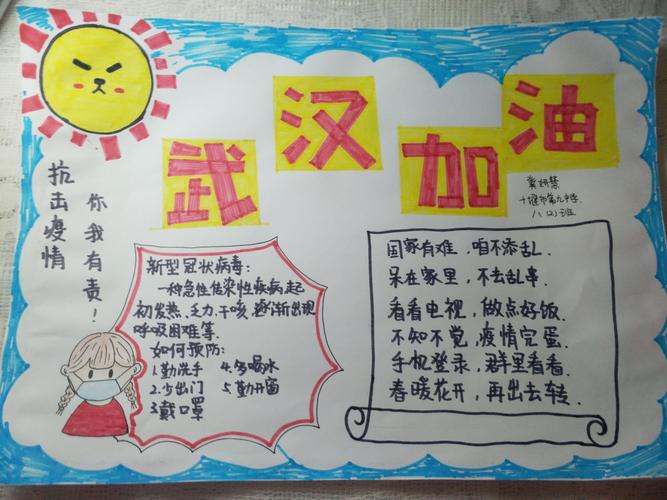 武汉加油
抗击疫情
你我有责!
十堰市第九中学
八(2)班
新型冠状病毒:
一种急性传染性疾病,起
初发热,乏力,干咳,逐渐出现
呼吸困难等.
如何预防:
1.勤洗手 4.多喝水
2.少出门 5.勤开窗
3.戴口罩
国家有难,咱不添乱.
呆在家里,不去乱串.
看看电视,做点好饭.
不知不觉,疫情完蛋.
手机登录,群里看看.
春暖花开,再出去转.